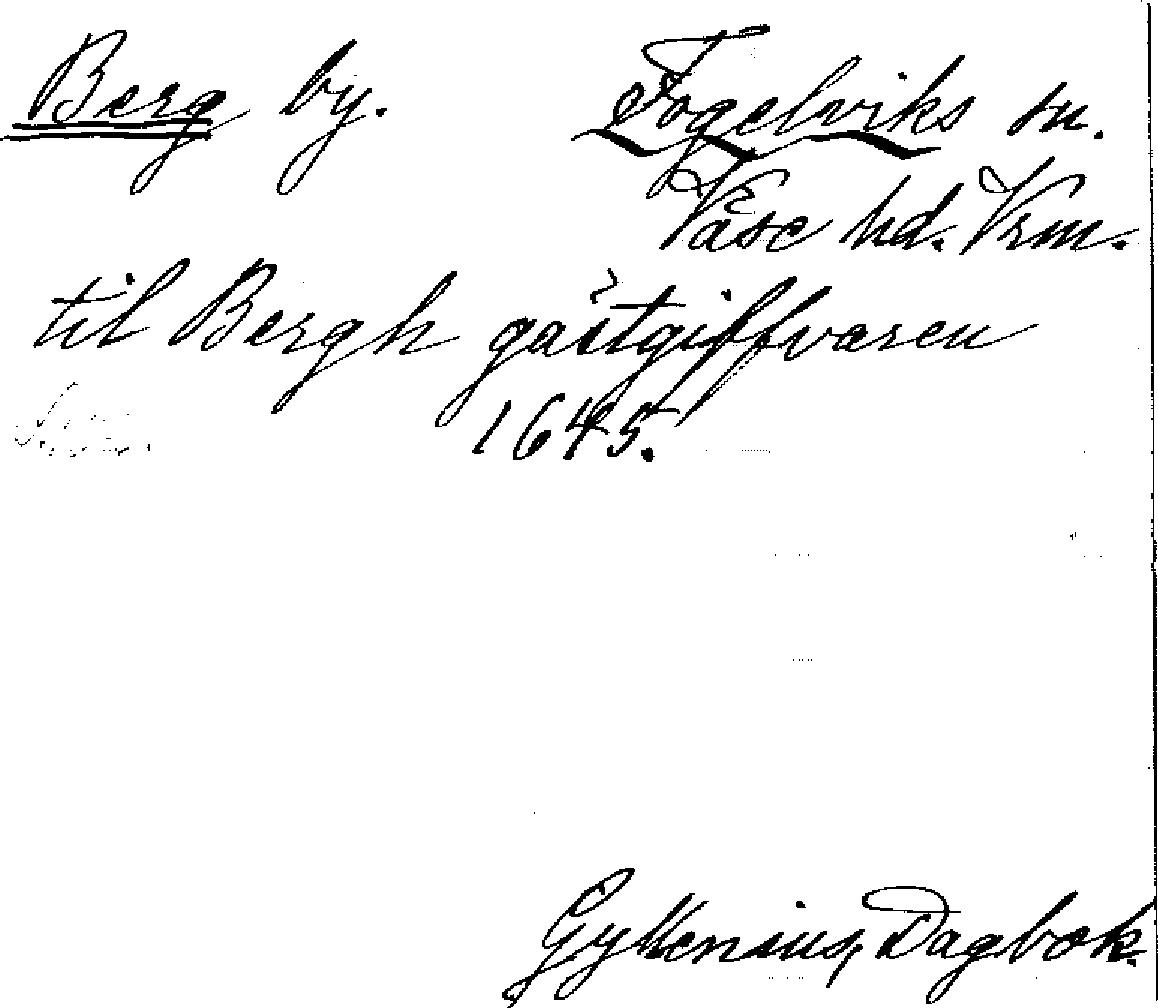 Berg by. Fogelviks sn.
Väse hd. Vrm.
til Bergh gästgiffvaren
1645.
Gyllenius, Dagbok.